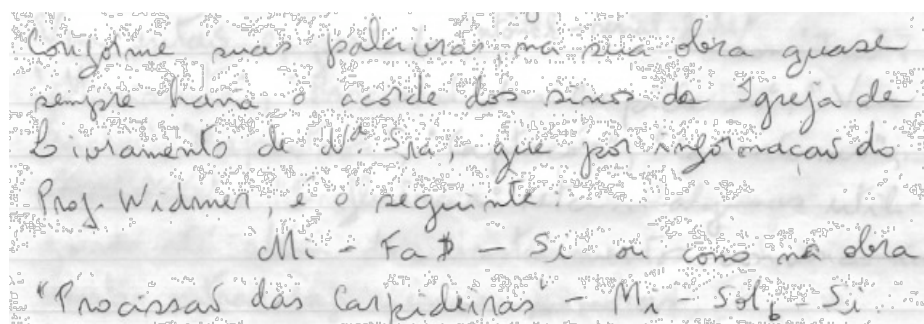 Conforme suas palavras, na sua obra quase
sempre havia o acorde dos sinos da Igreja de
Livramento de Nª Srª, que por informação do
Prof. Widmer, é o seguinte:
Mi - Fa# - Si ou como na obra
"Procissão das Carpideiras" - Mi - Solb - Si